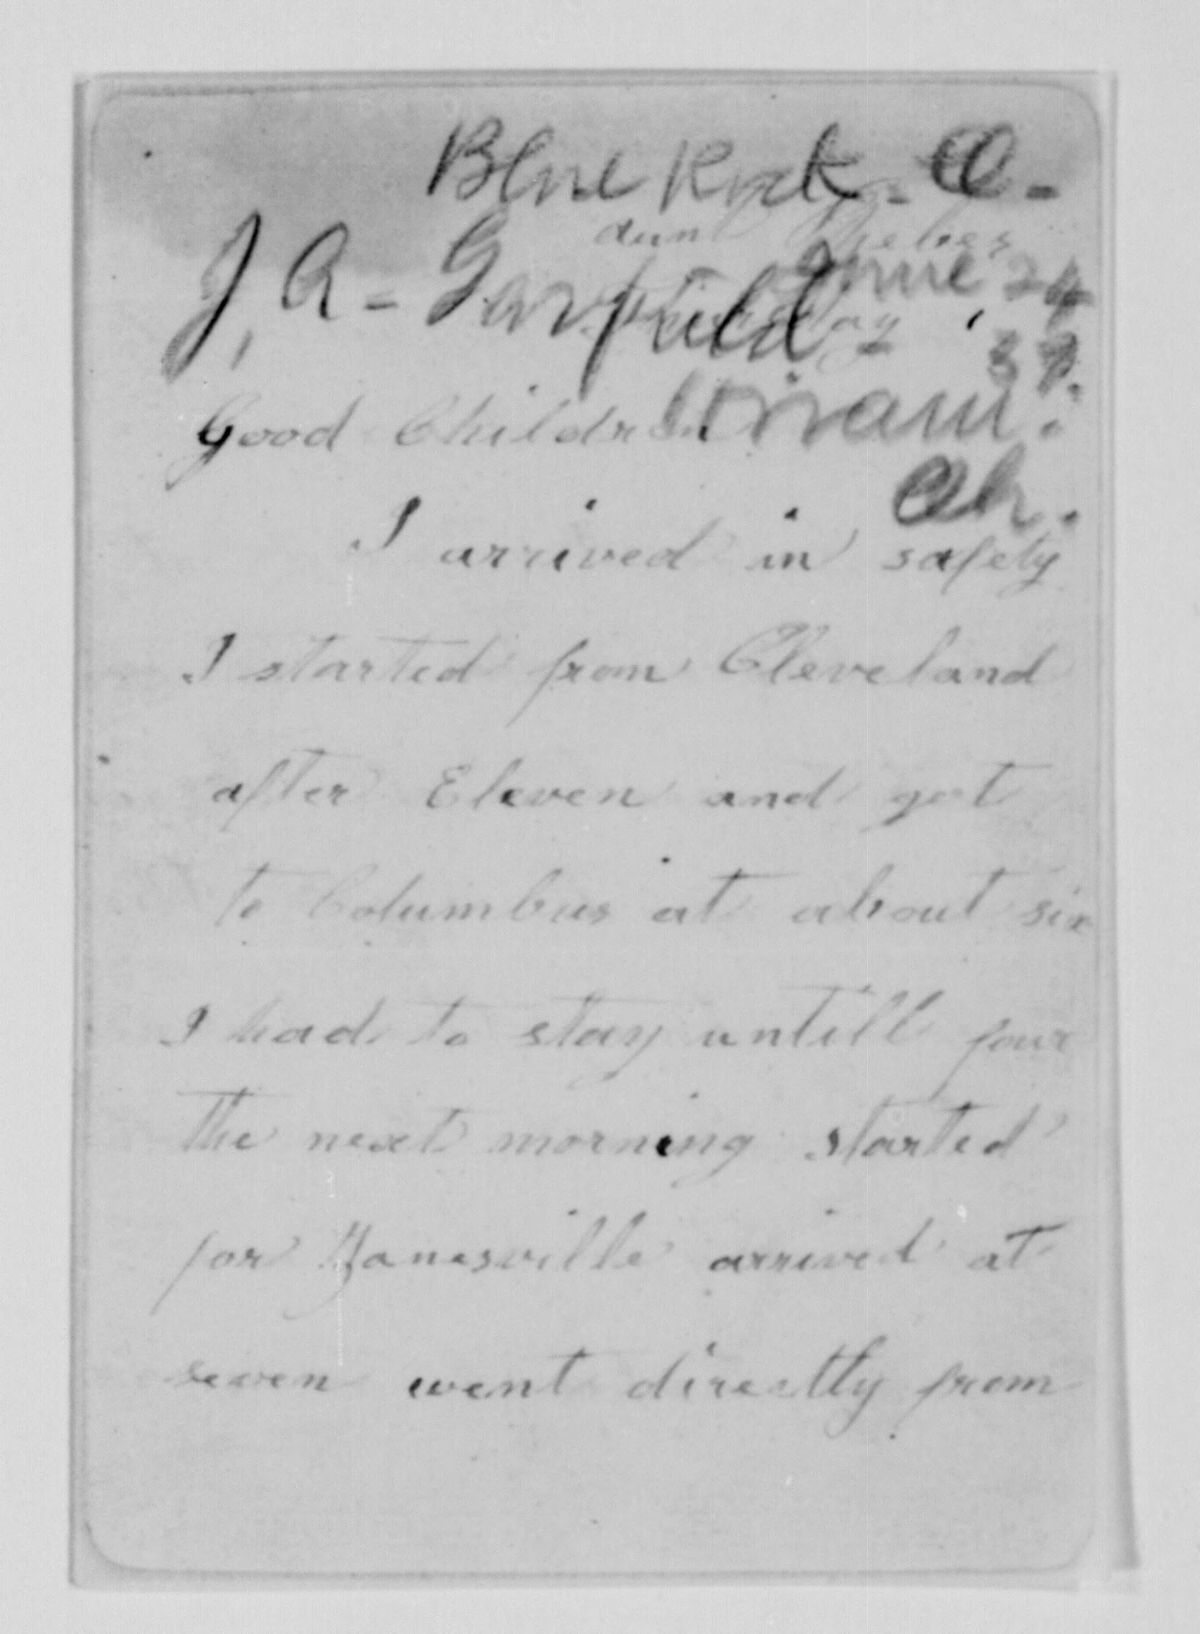 Blue Rock - O -
aunt Phebes
J, A - Garfield June, 24
Thursday
Hiram.
Oh.
Good Children
I arrived in safety
I started from Cleveland
after Eleven and got
to Columbus at about six
I had to stay untill four
the next morning started
for Zanesville arrived at
seven went directly from